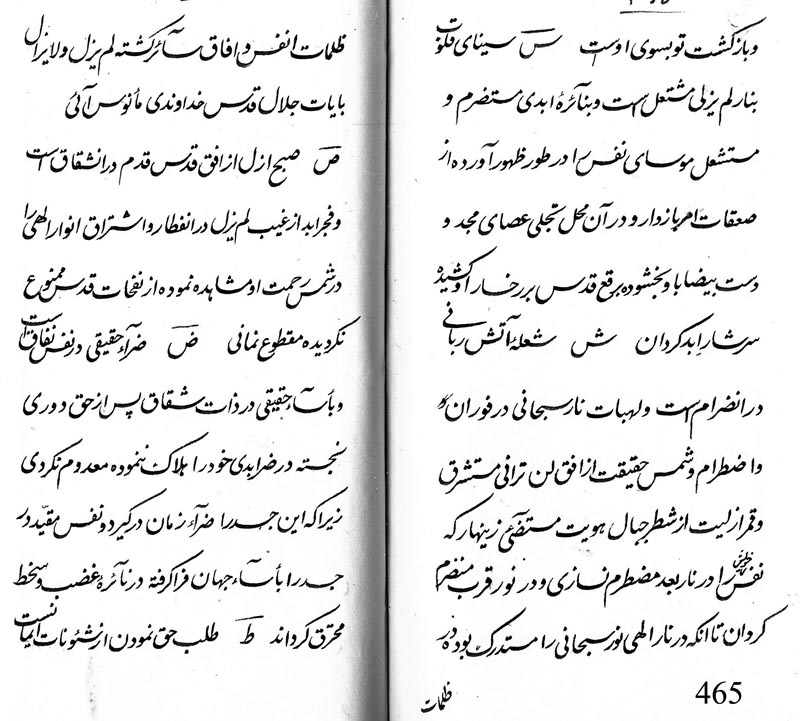 و بازگشت تو بسوی اوست س سینای قلوب
بنار لم یزلی مشتعل است و بنآئرهٔ ابدی مستضرم و
مستشعل موسای نفس را در طور ظهور آورده از
صعقات امر بازدار و در آن محل تجلی عصای مجد و
دست بیضا باو بخشوده برقع قدس بر رخسار او کشیده
سرشار ابد کردان ش شعلهٔ آتش ربانی
در انضرام است و لهبات نار سبحانی در فوران
و اضطرام و شمس حقیقت از افق لن ترانی مستشرق
و قمر ازلیت از شطر جبال هویت مستضئ زینهار که
نفس را در نار بعد مضطرم نسازی و در نور قرب منضرم
کردان تا انکه در نار الهی نور سبحانی را مستدرک بوده در
465
ظلمات
ظلمات انفس و افاق سآئر کشته لم یزل و لا یزال
بایات جلال قدس خداوندی مأنوس آئی
ص صبح ازل از افق قدس قدم در انشقاق است
و فجر ابد از غیب لم یزل در انفطار و اشتراق انوار الهی را
در شمس رحمت او مشاهده نموده از نفحات قدس ممنوع
نکردیده مقطوع نمانی ض ضرآء حقیقی در نفس نفاق است
و بأسآء حقیقی در ذات شقاق پس از حق دوری
نجسته در ضر ابدی خود را هلاک ننموده معدوم نکردی
زیرا که این جسد را ضرآء زمان در کیرد و نفس مقید در
جسد را بأسآء جهان فرا کرفته در نآئرهٔ غضب و سخط
محترق کرداند ط طلب حق نمودن از شئونات ایمانست